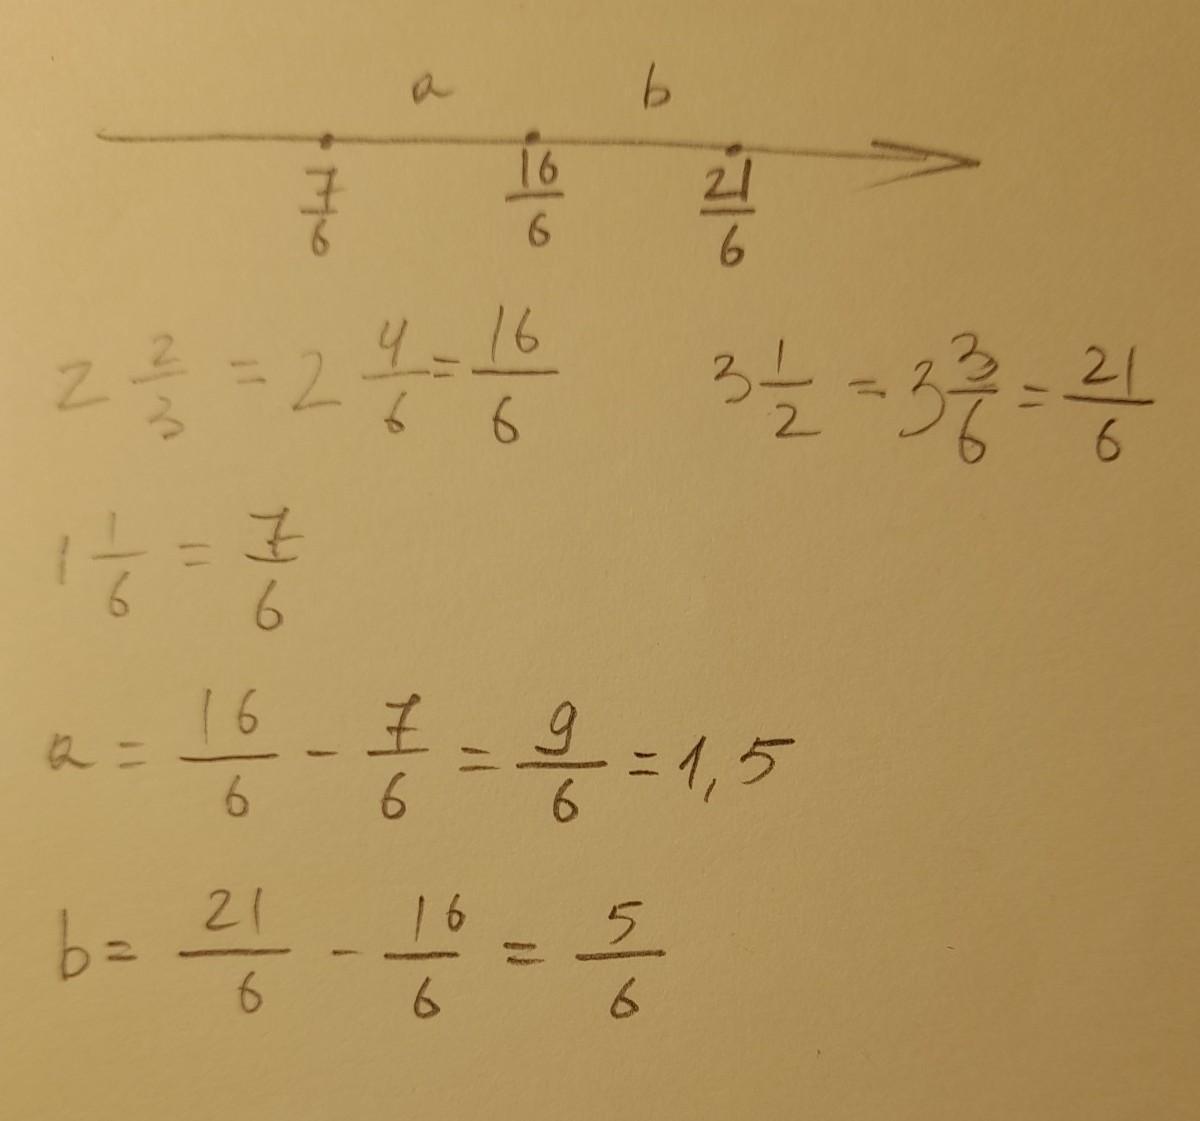 a b
7/6 16/6 21/6
2 2/3 = 2 4/6 = 16/6 3 1/2 = 3 3/6 = 21/6
1 1/6 = 7/6
a = 16/6 - 7/6 = 9/6 = 1,5
b = 21/6 - 16/6 = 5/6